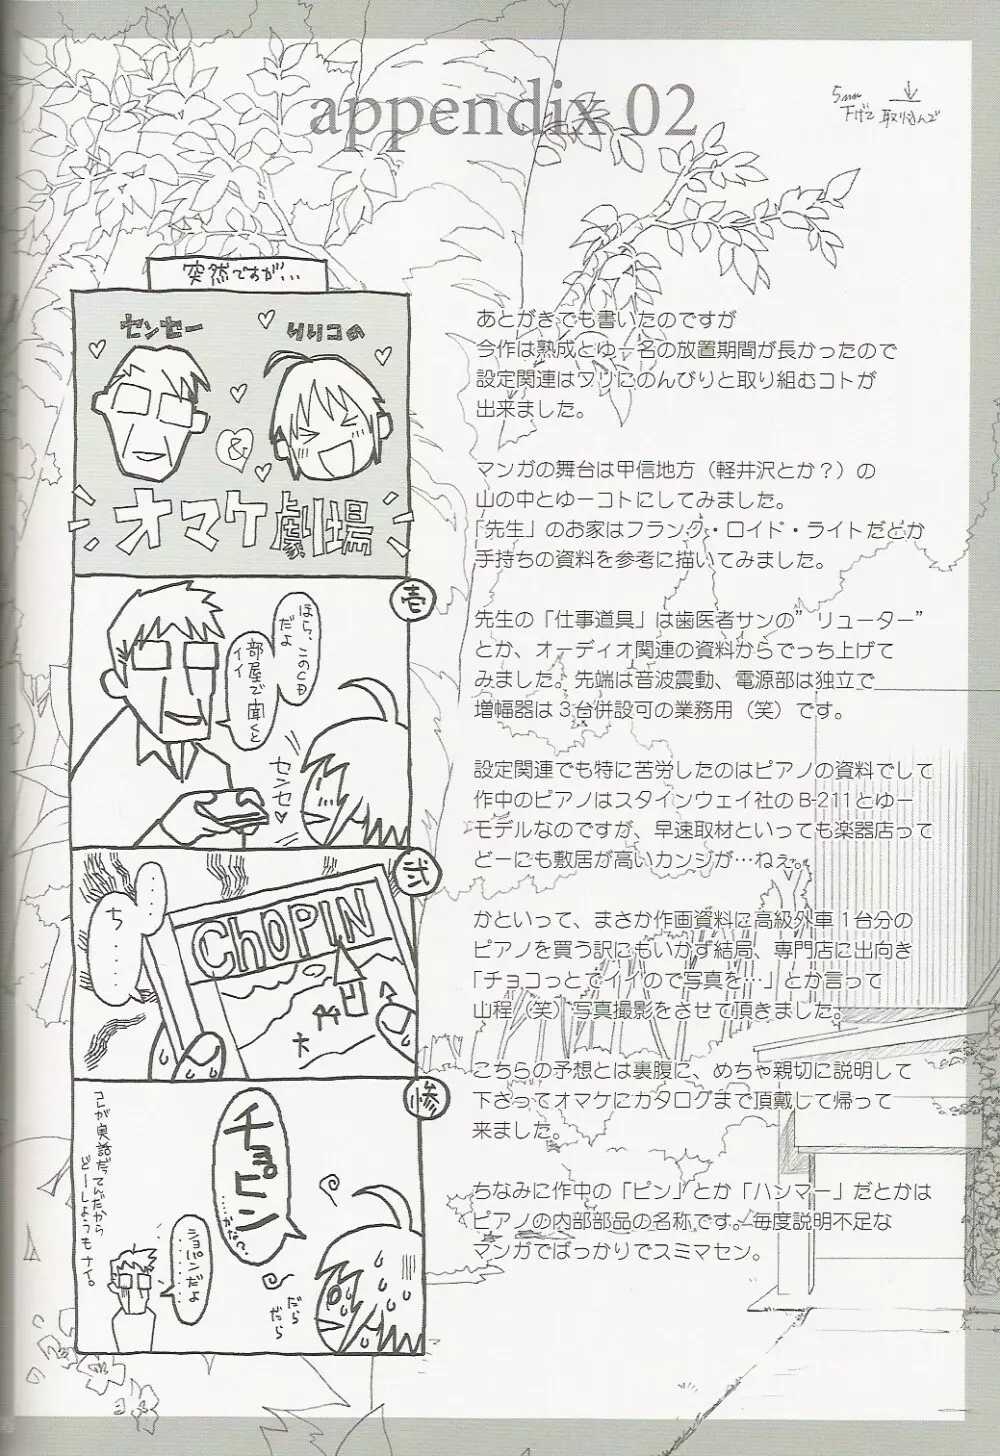 appendix 02
5mm
下げて 取り込んで
突然ですが...
センセー
リリコの
&
オマケ劇場
壱
ほら、このCD
だよ
部屋で聞くと
イイ
センセ♡
弐
CHOPIN
・・・
ち・・・・
惨
チョピン
ショパンだよ
・・・・・・
だら
だら
コレが実話だってんだから
どーしようもナイ。
あとがきでも書いたのですが
今作は熟成とゆー名の放置期間が長かったので
設定関連はワリにのんびりと取り組むコトが
出来ました。
マンガの舞台は甲信地方(軽井沢とか?)の
山の中とゆーコトにしてみました。
「先生」のお家はフランク・ロイド・ライトだどか
手持ちの資料を参考に描いてみました。
先生の「仕事道具」は歯医者サンの”リューター”
とか、オーディオ関連の資料からでっち上げて
みました。先端は音波震動、電源部は独立で
増幅器は3台併設可の業務用(笑)です。
設定関連でも特に苦労したのはピアノの資料でして
作中のピアノはスタインウェイ社のB-211とゆー
モデルなのですが、早速取材といっても楽器店って
どーにも敷居が高いカンジが…ねぇ。
かといって、まさか作画資料に高級外車1台分の
ピアノを買う訳にもいかず結局、専門店に出向き
「チョコっとでイイので写真を…」とか言って
山程(笑)写真撮影をさせて頂きました。
こちらの予想とは裏腹に、めちゃ親切に説明して
下さってオマケにカタログまで頂戴して帰って
来ました。
ちなみに作中の「ピン」とか「ハンマー」だとかは
ピアノの内部部品の名称です。毎度説明不足な
マンガでばっかりでスミマセン。